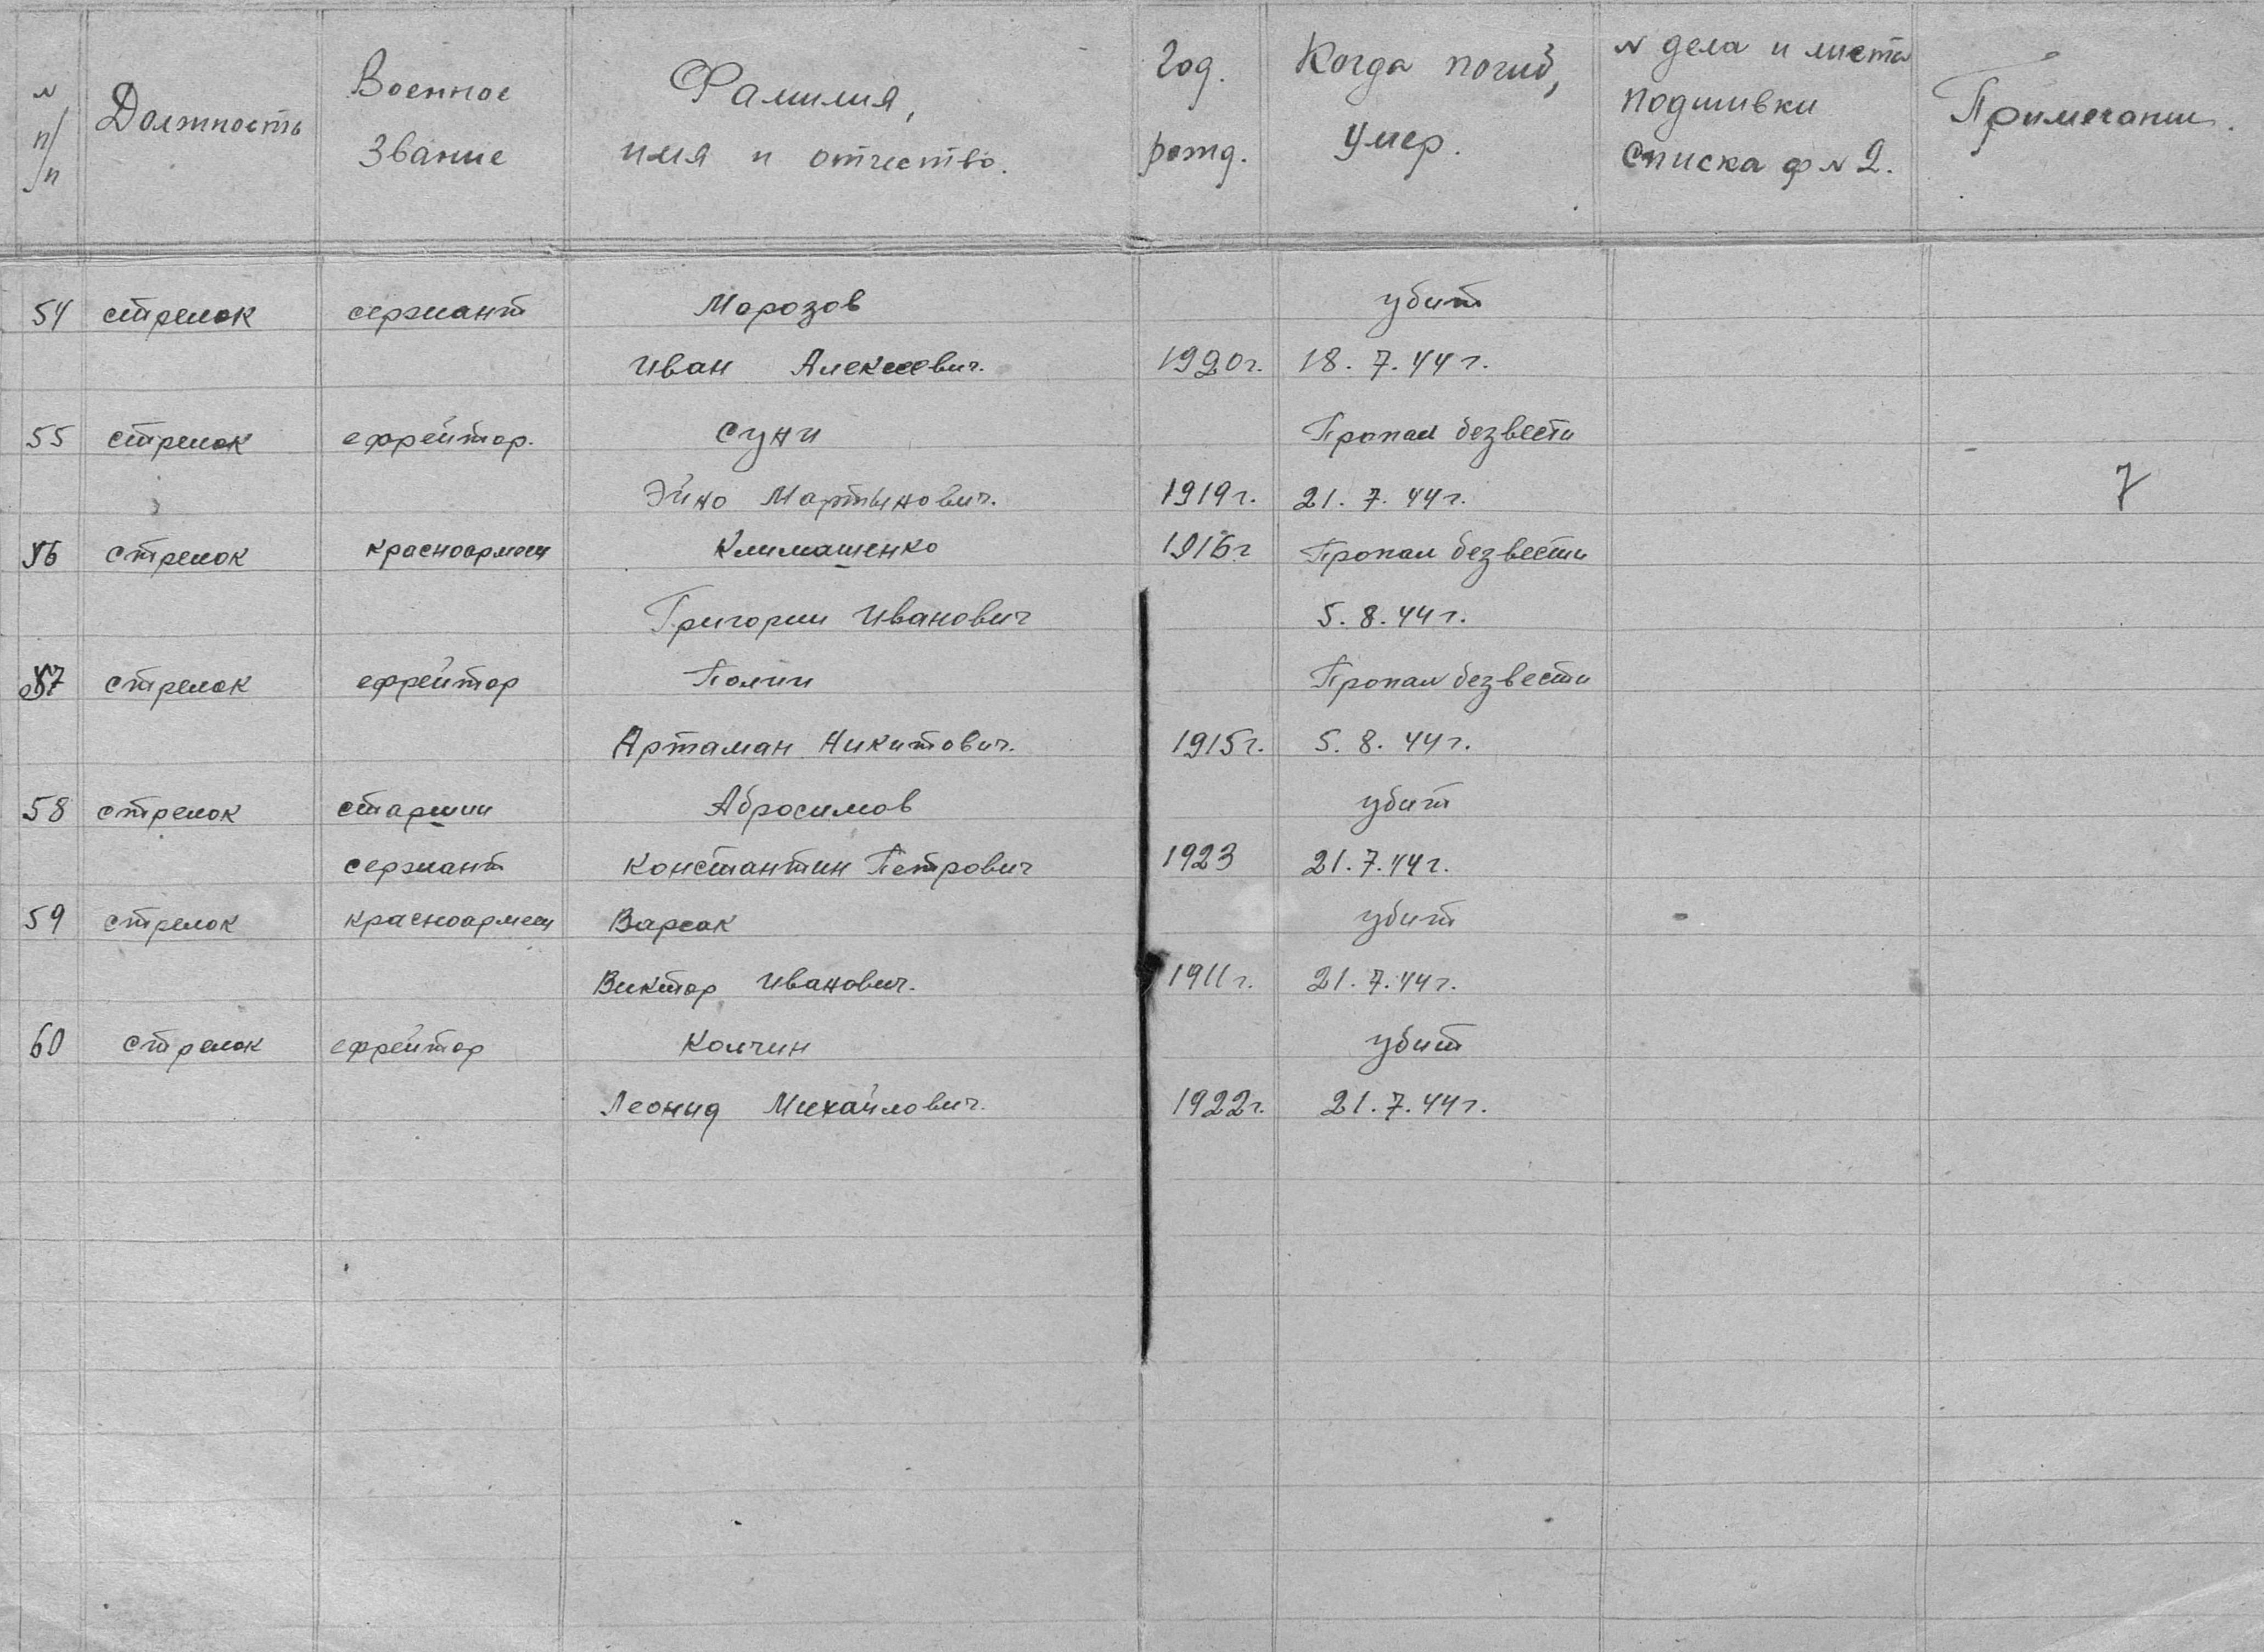 N п/п Должность Военное звание Фамилия, имя и отчество. Год. рожд. Когда погиб, умер. N дела и листа подшивки списка ф N 2. Примечание.
54 стрелок сержант Морозов убит
Иван Алексеевич. 1920г. 18.7.44г.
55 стрелок ефрейтор. Суни Пропал безвести
Эйно Мартынович. 1919г. 21.7.44г. 7
56 стрелок красноармеец Климашенко 1916г Пропал безвести
Григории Иванович 5.8.44г.
57 стрелок ефрейтор Пропал безвести
Артаман Никитович. 1915г. 5.8.44г.
58 стрелок старшии Абросимов убит
сержант Константин Петрович 1923 21.7.44г.
59 стрелок красноармеец Варсак убит
Виктор Иванович. 1911г. 21.7.44г.
60 стрелок ефрейтор Колчин убит
Леонид Михайлович. 1922г. 21.7.44г.